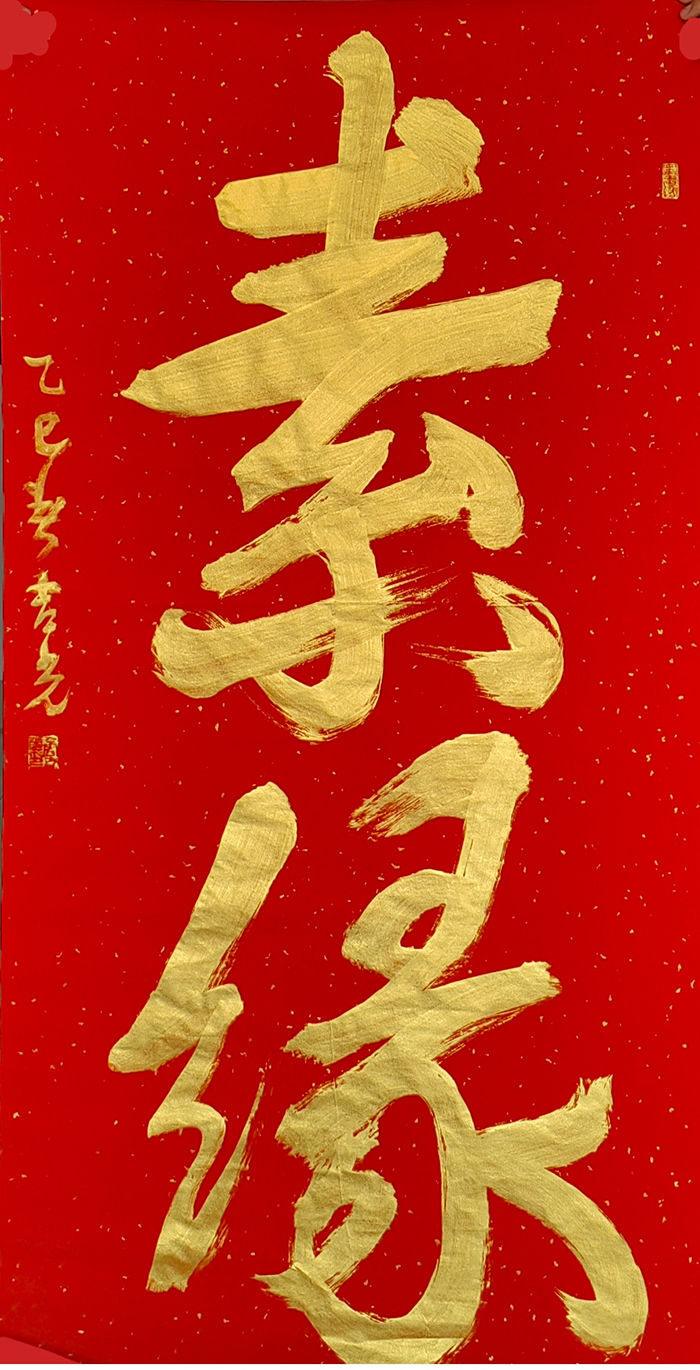 素缘
乙巳春